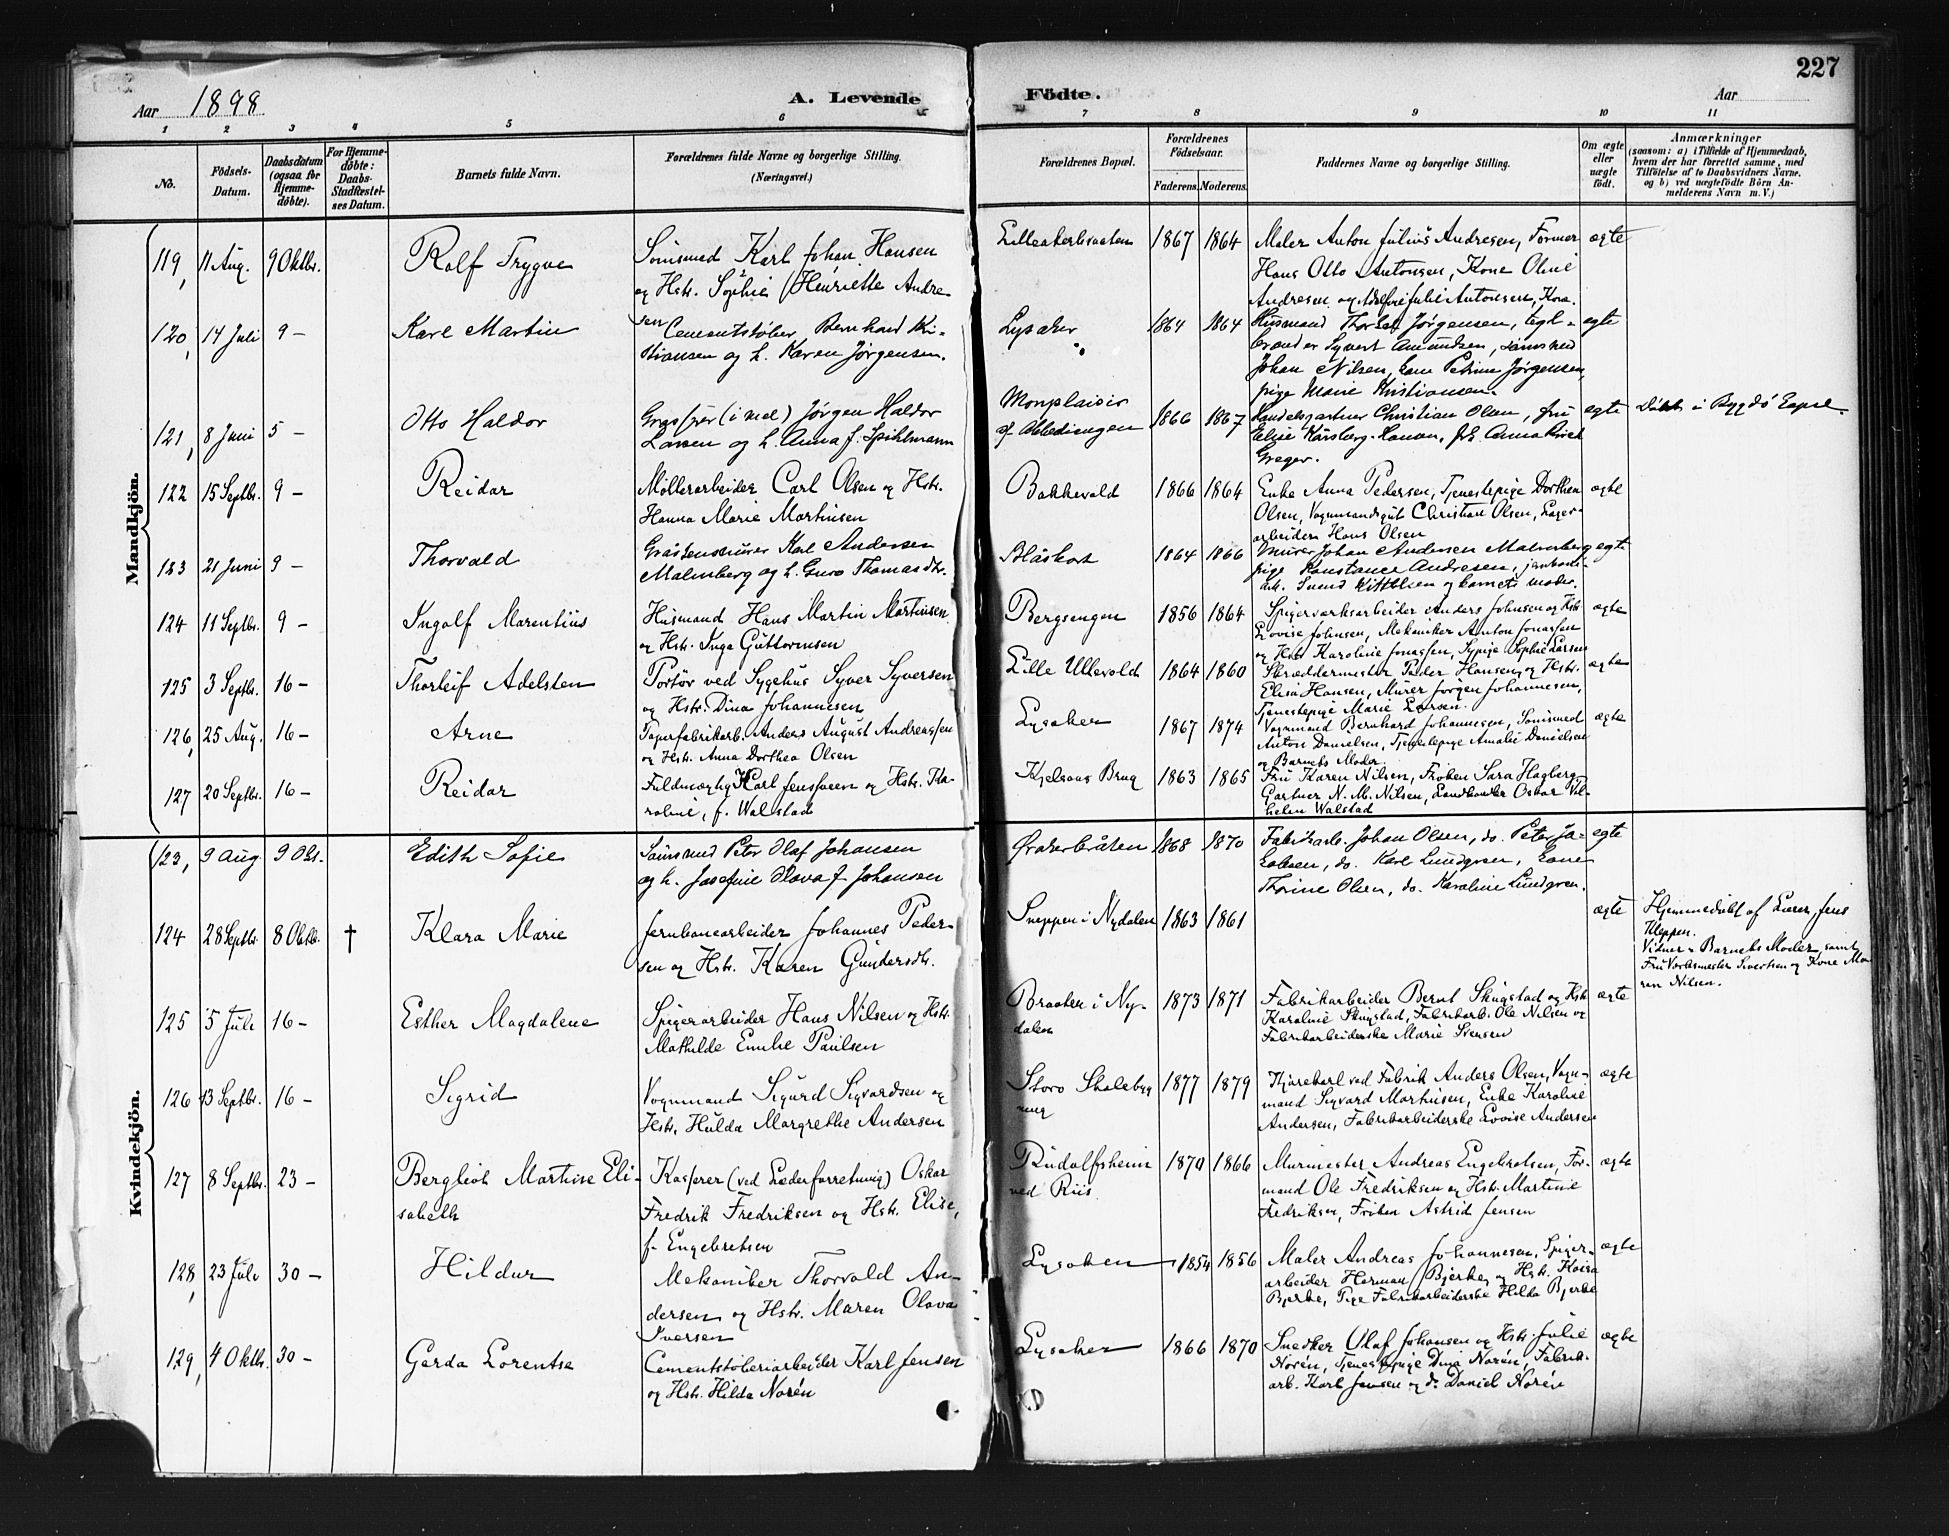 227
Aar 1898
A. Levende Födte.
Aar
1 2 3 4 5 6 7 8 9 10 11
No.
Födsels-Datum.
Daabsdatum (ogsaa for Hjemme-döbte).
For Hjemme-döbte: Daabs-Stadfæstel-ses Datum.
Barnets fulde Navn.
Forældrenes fulde Navne og borgerlige Stilling. (Næringsvei.)
Forældrenes Bopæl.
Forældrenes Födselsaar.
Faderens. Moderens.
Faddernes Navne og borgerlige Stilling.
Om ægte eller uægte födt.
Anmærkninger
(saasom: a) i Tilfælde af Hjemmedaab, hvem der har forrettet samme, med Tilföielse af to Daabsvidners Navne, og b) ved uægtefödte Börn An-melderens Navn m. V.)
Mandkjön.
119, 11 Aug. 9 Oktbr. Rolf Trygve
Sömsmed Karl Johan Hansen
og Hstr. Sophie Henriette Andre
sen
1867 1864
Maler Anton Julius Andresen, Former
Hans Otto Antonsen, Kone Oline
Andresen og Julie Antonsen, Kone.
ægte
120, 14 Juli 9 – Karl Martin
Cementstøber Bernhard Kri-
stiansen og h. Karen Jørgensen.
Lysaker 1864 1864
Husmand Thorlef Jørgensen, tegl-
brænder Syvert Amundsen, sømsmed
Johan Nilsen, kone Petrine Jørgensen,
pige Marie Kristiansen.
ægte
121, 8 Juni 5 – Otto Haldor
(i mel) Jørgen Haldor
Larsen og h. Anna f. Spihlmann
Monplaisir
af Abbediengen
1866 1867
Handelsgartner Christian Olsen, fru
Elise
Greger.
ægte
i Bygdö
122 15 Septbr. 9 – Reidar
Møllerarbeider Carl Olsen og Hstr.
Hanna Marie Martinsen
Bakkevold 1866 1864
Enke Anna Pedersen, Tjenestepige Dorthea
Olsen, Vognmandsgut Christian Olsen, Lager-
arbeider Hans Olsen
ægte
123 21 Juni 9 – Thorvald
Karl Andersen
Malmberg og h. Guro Thomasdtr.
1864 1866
Murer Johan Andersen Malmberg
pige Konstance Andresen,
Svend Kittelsen og barnets moder.
ægte
124 11 Septbr. 9 – Ingolf Marentius
Husmand Hans Martin Martinsen
og Hstr. Inga Guttormsen
Bergsengen 1856 1864
Spigerverksarbeider Anders Johnsen og Hstr.
Lovise Johnsen, Mekaniker Anton Jonassen
og Hstr Karoline Jonassen, Sypige Sophie Larsen
ægte
125 3 Septbr. 16 – Thorleif Adelsten
Portør ved Sygehus Syver Syversen
og Hstr. Dina Johannesen
Lille Ullevold 1864 1860
Skræddermester Peder Hansen og Hstr.
Elisa Hansen, Murer Jørgen Johannesen,
Tjenestepige Marie Larsen.
ægte
126, 25 Aug. 16 – Arne
Papirfabrikarb. Anders August Andreassen
og Hstr. Anna Dorthea Olsen
Lysaker 1867 1874
Vognmand Bernhard Johannesen, Sömsmed
Anton Danielsen, Tjenestepige Amalie Danielsen
og Barnets Moder.
ægte
127 20 Septbr. 16 – Reidar
Fuldmægtig Karl Jenssen og Hstr. Ka-
roline, f. Walstad
Kjelsaas Brug 1863 1865
Fru Karen Nilsen, Frøken Sara Hagberg
Gartner N. M. Nilsen, Landhandler Oskar Vil-
helm Walstad
Kvindekjön.
123, 9 Aug 9 Okt. Edith Sofie
Sømsmed Peter Olaf Johansen
og h. Josefine Olava f. Johansen
Ørakerbråten 1868 1870
Fabrikarb. Johan Olsen, do. Peter Ja-
kobsen, do. Karl Lundgren, kone
Thorine Olsen, do. Karoline Lundgren.
ægte
124 28 Septbr. 8 Oktbr. † Klara Marie
Jernbanearbeider Johannes Peder-
sen og Hstr. Karen Gundersdtr.
Sneppen i Nydalen 1863 1861
ægte
Hjemmedöbt af Lærer Jens
Kleppen.
Vidner: Barnets Moder, samt
Fru Værksmester Sivertsen og Kone Ma
ren Nilsen.
125 5 Juli 16 – Esther Magdalene
Spigerarbeider Hans Nilsen og Hstr.
Mathilde Emilie Paulsen
Braaten i Ny-
dalen
1873 1871
Fabrikarbeider Bernt Skugstad og Hstr
Karoline Skugstad, Fabrikarb. Ole Nilsen og
Fabrikarbeiderske Marie Svensen
ægte
126 13 Septbr. 16 – Sigrid
Vognmand Sigurd Sigvardsen og
Hstr. Hulda Margrethe Andersen
Storo Skolebyg
ning
1877 1879
Kjørekarl ved Fabrik Anders Olsen, Vogn-
mand Sigvard Martinsen, Enke Karoline
Andersen, Fabrikarbeiderske Lovise Andersen
ægte
127 8 Septbr. 23 – Bergliot Martine Eli-
sabeth
Kasserer (ved Læderforretning) Oskar
Fredrik Fredriksen og Hstr. Elise,
f. Engebretsen
Rudolfsheim
ved Riis
1870 1866
Murmester Andreas Engebretsen, For-
mand Ole Fredriksen og Hstr. Martine
Fredriksen, Frøken Astrid Jensen
ægte
128, 23 Juli 30 – Hildur
Mekaniker Thorvald An-
dersen og Hstr. Maren Olava
Iversen
Lysaker 1854 1856
Maler Andreas Johannesen, Spiger-
arbeider Herman Bjerke og Hstr. Kaisa
Bjerke, Pige Fabrikarbeiderske Hilda Bjerke
ægte
129, 4 Oktbr. 30 – Gerda Lorentse
Cementstøberiarbeider Karl Jensen
og Hstr. Hilda Norén
Lysaker 1866 1870
Snedker Olaf Johansen og Hstr. Julie
Norén, Tjenestepige Dina Norén, Fabrik-
arb. Karl Jensen og do Daniel Norén
ægte